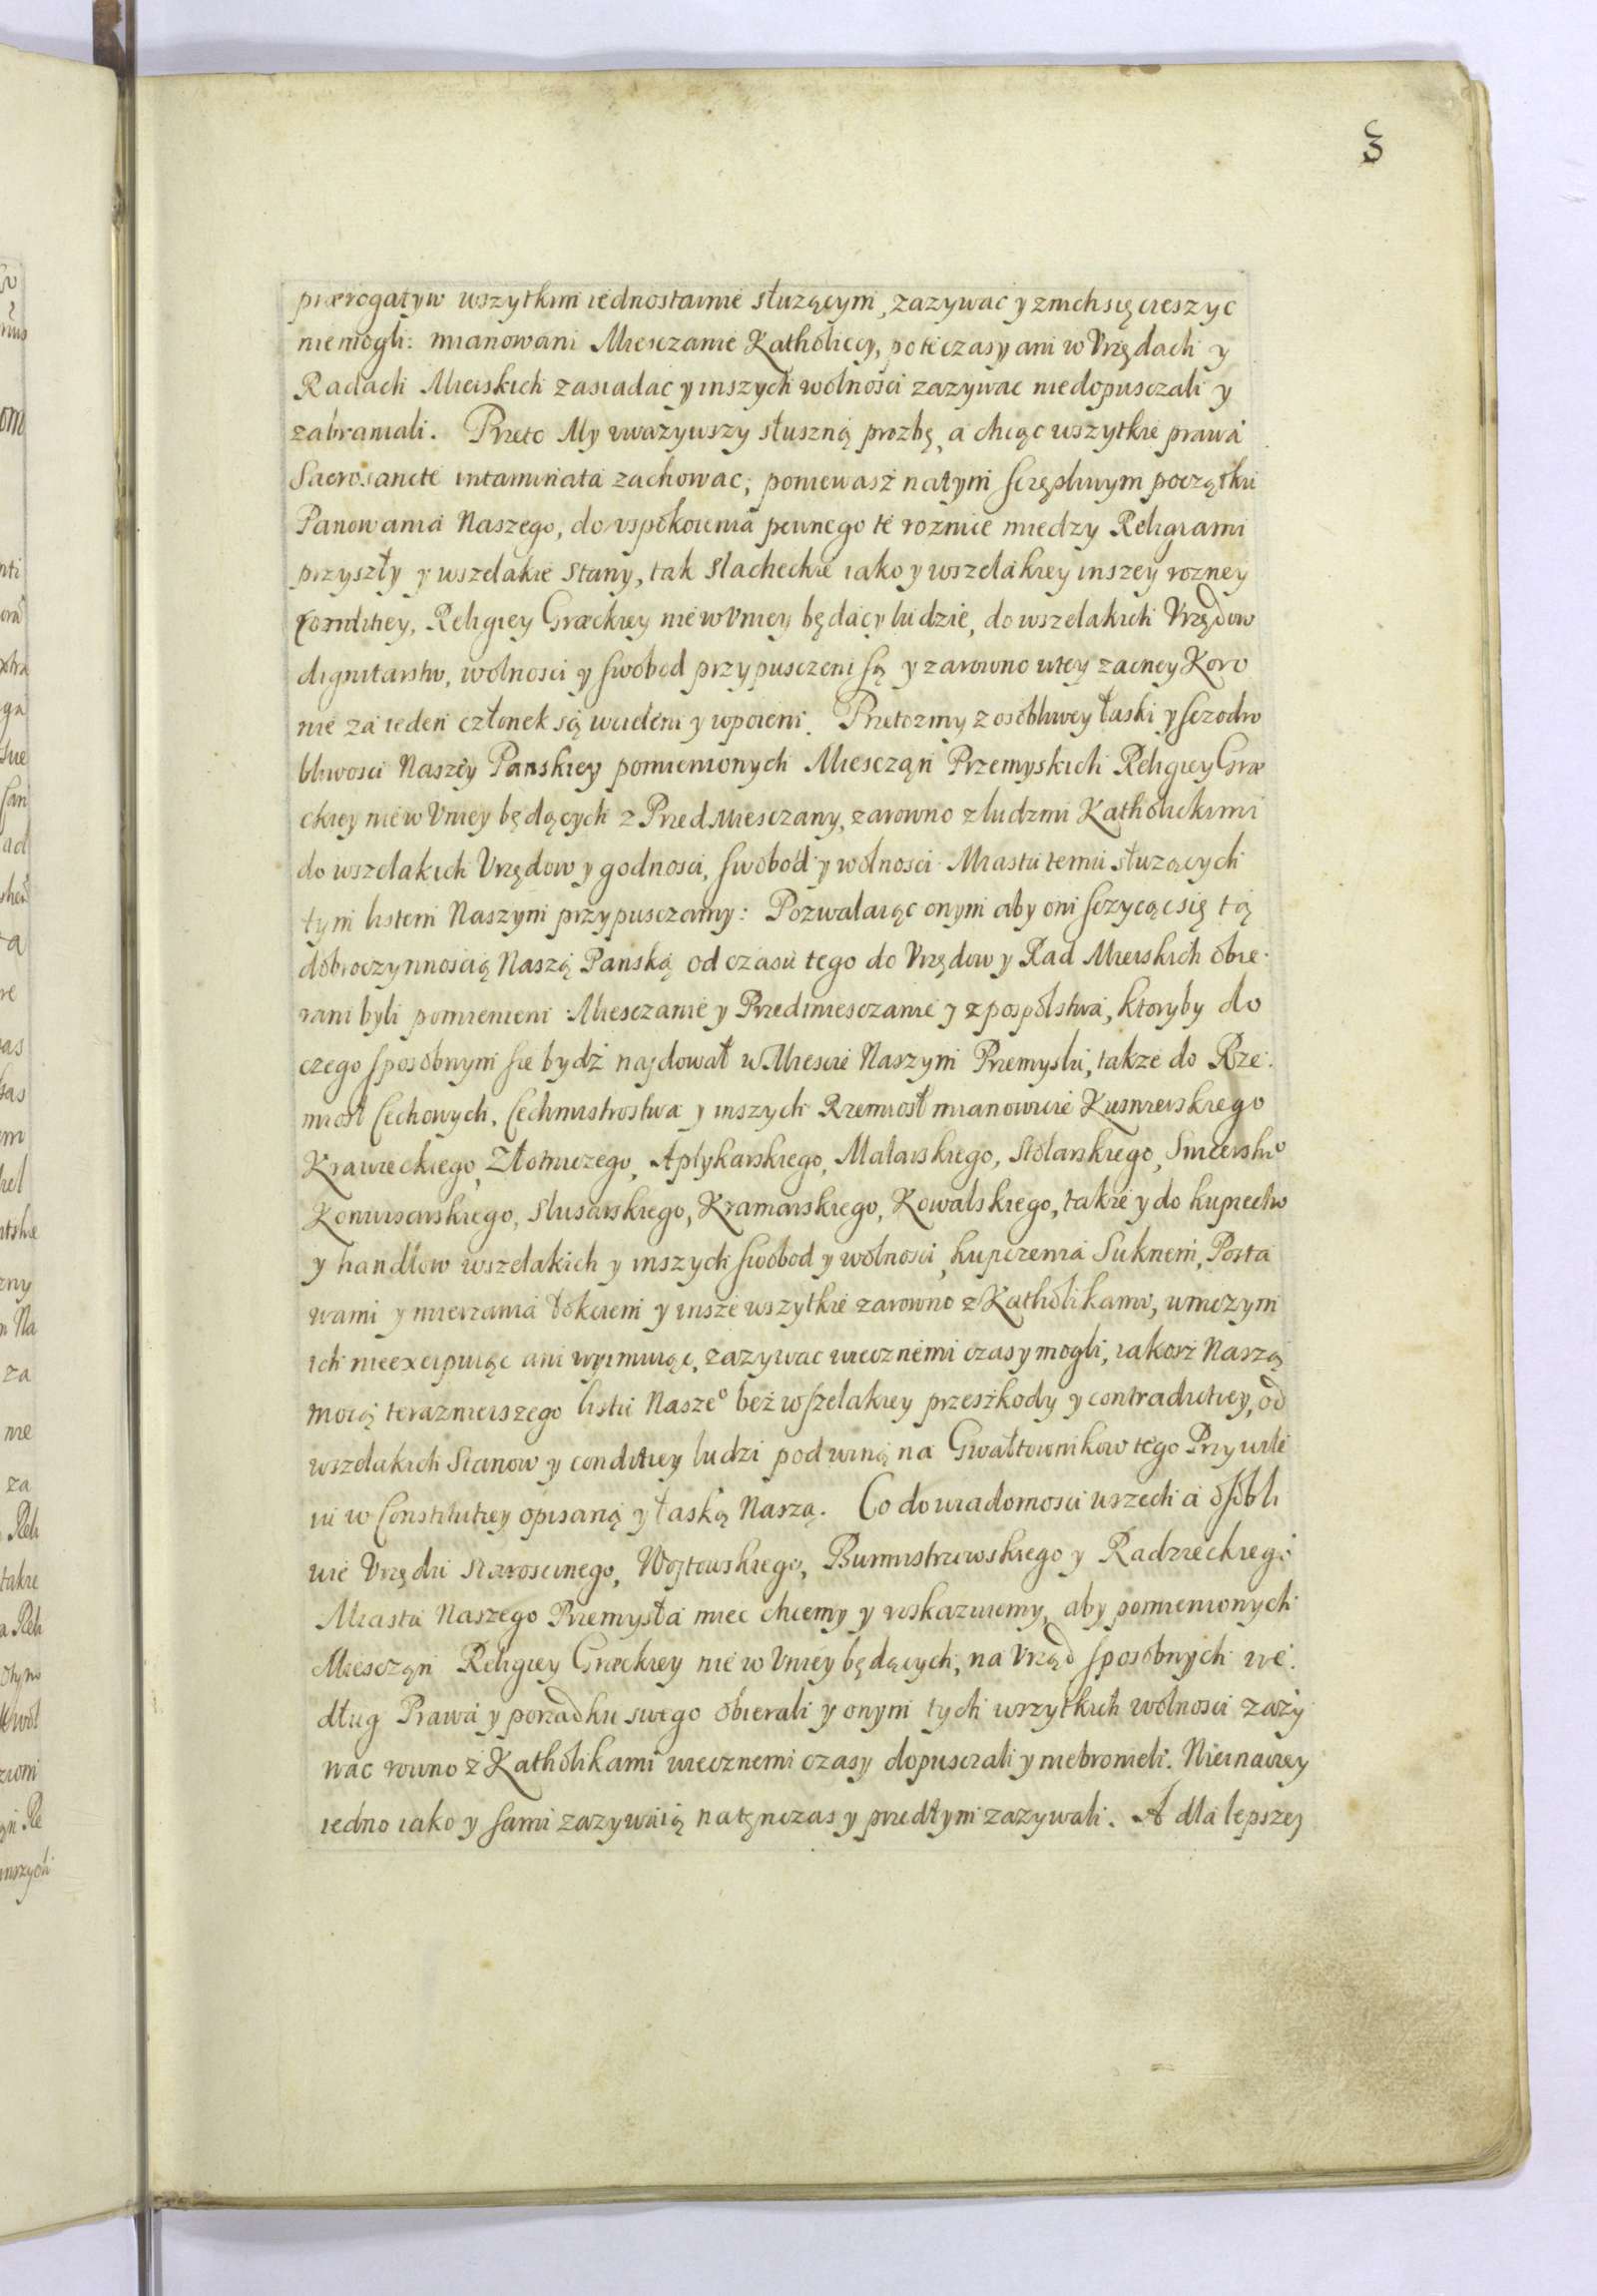 3
prærogatyw wszytkim iednostainie służącym, zazywac y znich się cieszyc
niemogli: mianowani Miesczanie Katholiccy, poteczasy ani w Vrzędach y
Radach Mieiskich zasiadac y inszych wolnosci zazywac niedopusczali y
zabraniali. Przeto My vwazywszy słuszną prozbę, a chcąc wszytkie prawa
Sacrosancte intaminata zachowac, poniewasz natym sczęsliwym początku
Panowania Naszego, do vspokoienia pewnego te roznice miedzy Religiami
przyszły y wszelakie stany, tak slacheckie iako y wszelakiey inszey rozney
Conditiey, Religiey Græckiey niewVniey będący ludzie, do wszelakich Vrzędow
dignitarstw, wolnosci y swobod przypusczeni są y zarowno wtey zacney Koro
nie za ieden członek są wcieleni y wpoieni. Przetozmy z osobliwey łaski y sczodro
bliwosci Naszey Panskiey pomienionych Miescząn Przemyskich Religiey Græ
ckiey niew Vniey będących z Przedmiesczany, zarowno z ludzmi Katholickimi
do wszelakich Vrzędow y godnosci, swobod y wolnosci Miastu temu służących
tym listem Naszym przypusczamy: Pozwalaiąc onym aby oni sczycąc się tą
dobroczynnoscią Naszą Panską od czasu tego do Vrzędow y Rad Mieiskich obie
rani byli pomienieni Miesczanie y Przedmiesczanie y z pospolstwa, ktoryby do
czego sposobnym sie bydź najdował w Miescie Naszym Przemyslu, takze do Rze
miosł Cechowych, Cechmistrostwa y inszych Rzemiosł mianowicie Kusnierskiego
Krawieckiego, Złotniczego, Aptykarskiego, Malarskiego, Stolarskiego, Snicerskio
Konwisarskiego, Slusarskiego, Kramarskiego, Kowalskiego, takze y do kupiectw
y handlow wszelakich y inszych swobod y wolnosci, kupczenia Suknem, Posta
wami y mierzania łokciem y insze wszytkie zarowno z Katholikami, wniczym
ich nieexcipuiąc ani wyimuiąc, zazywac wiecznemi czasy mogli, iakosz Naszą
mocą teraznieiszego listu Naszeo bez wszelakiey przeszkody y contradictiey, od
wszelakich Stanow y conditiey ludzi pod winą na Gwałtownikow tego Przywile
iu w Constitutiey opisaną y łaską Naszą. Co do wiadomosci wszech a osobli
wie Vrzędu Staroscinego, Wojtowskiego, Burmistrzowskiego y Radzieckiego
Miasta Naszego Przemysla miec chcemy y roskazuiemy, aby pomienionych
Miescząn Religiey Græckiey nie w Vniey będących, na Vrząd sposobnych we
dług Prawa y porzadku swego obierali y onym tych wszytkich wolnosci zazy
wac rowno z Katholikami wiecznemi czasy dopusczali y niebronieli. Nieinaczey
iedno iako y sami zazywaią natęnczas y przedtym zazywali. A dla lepszej